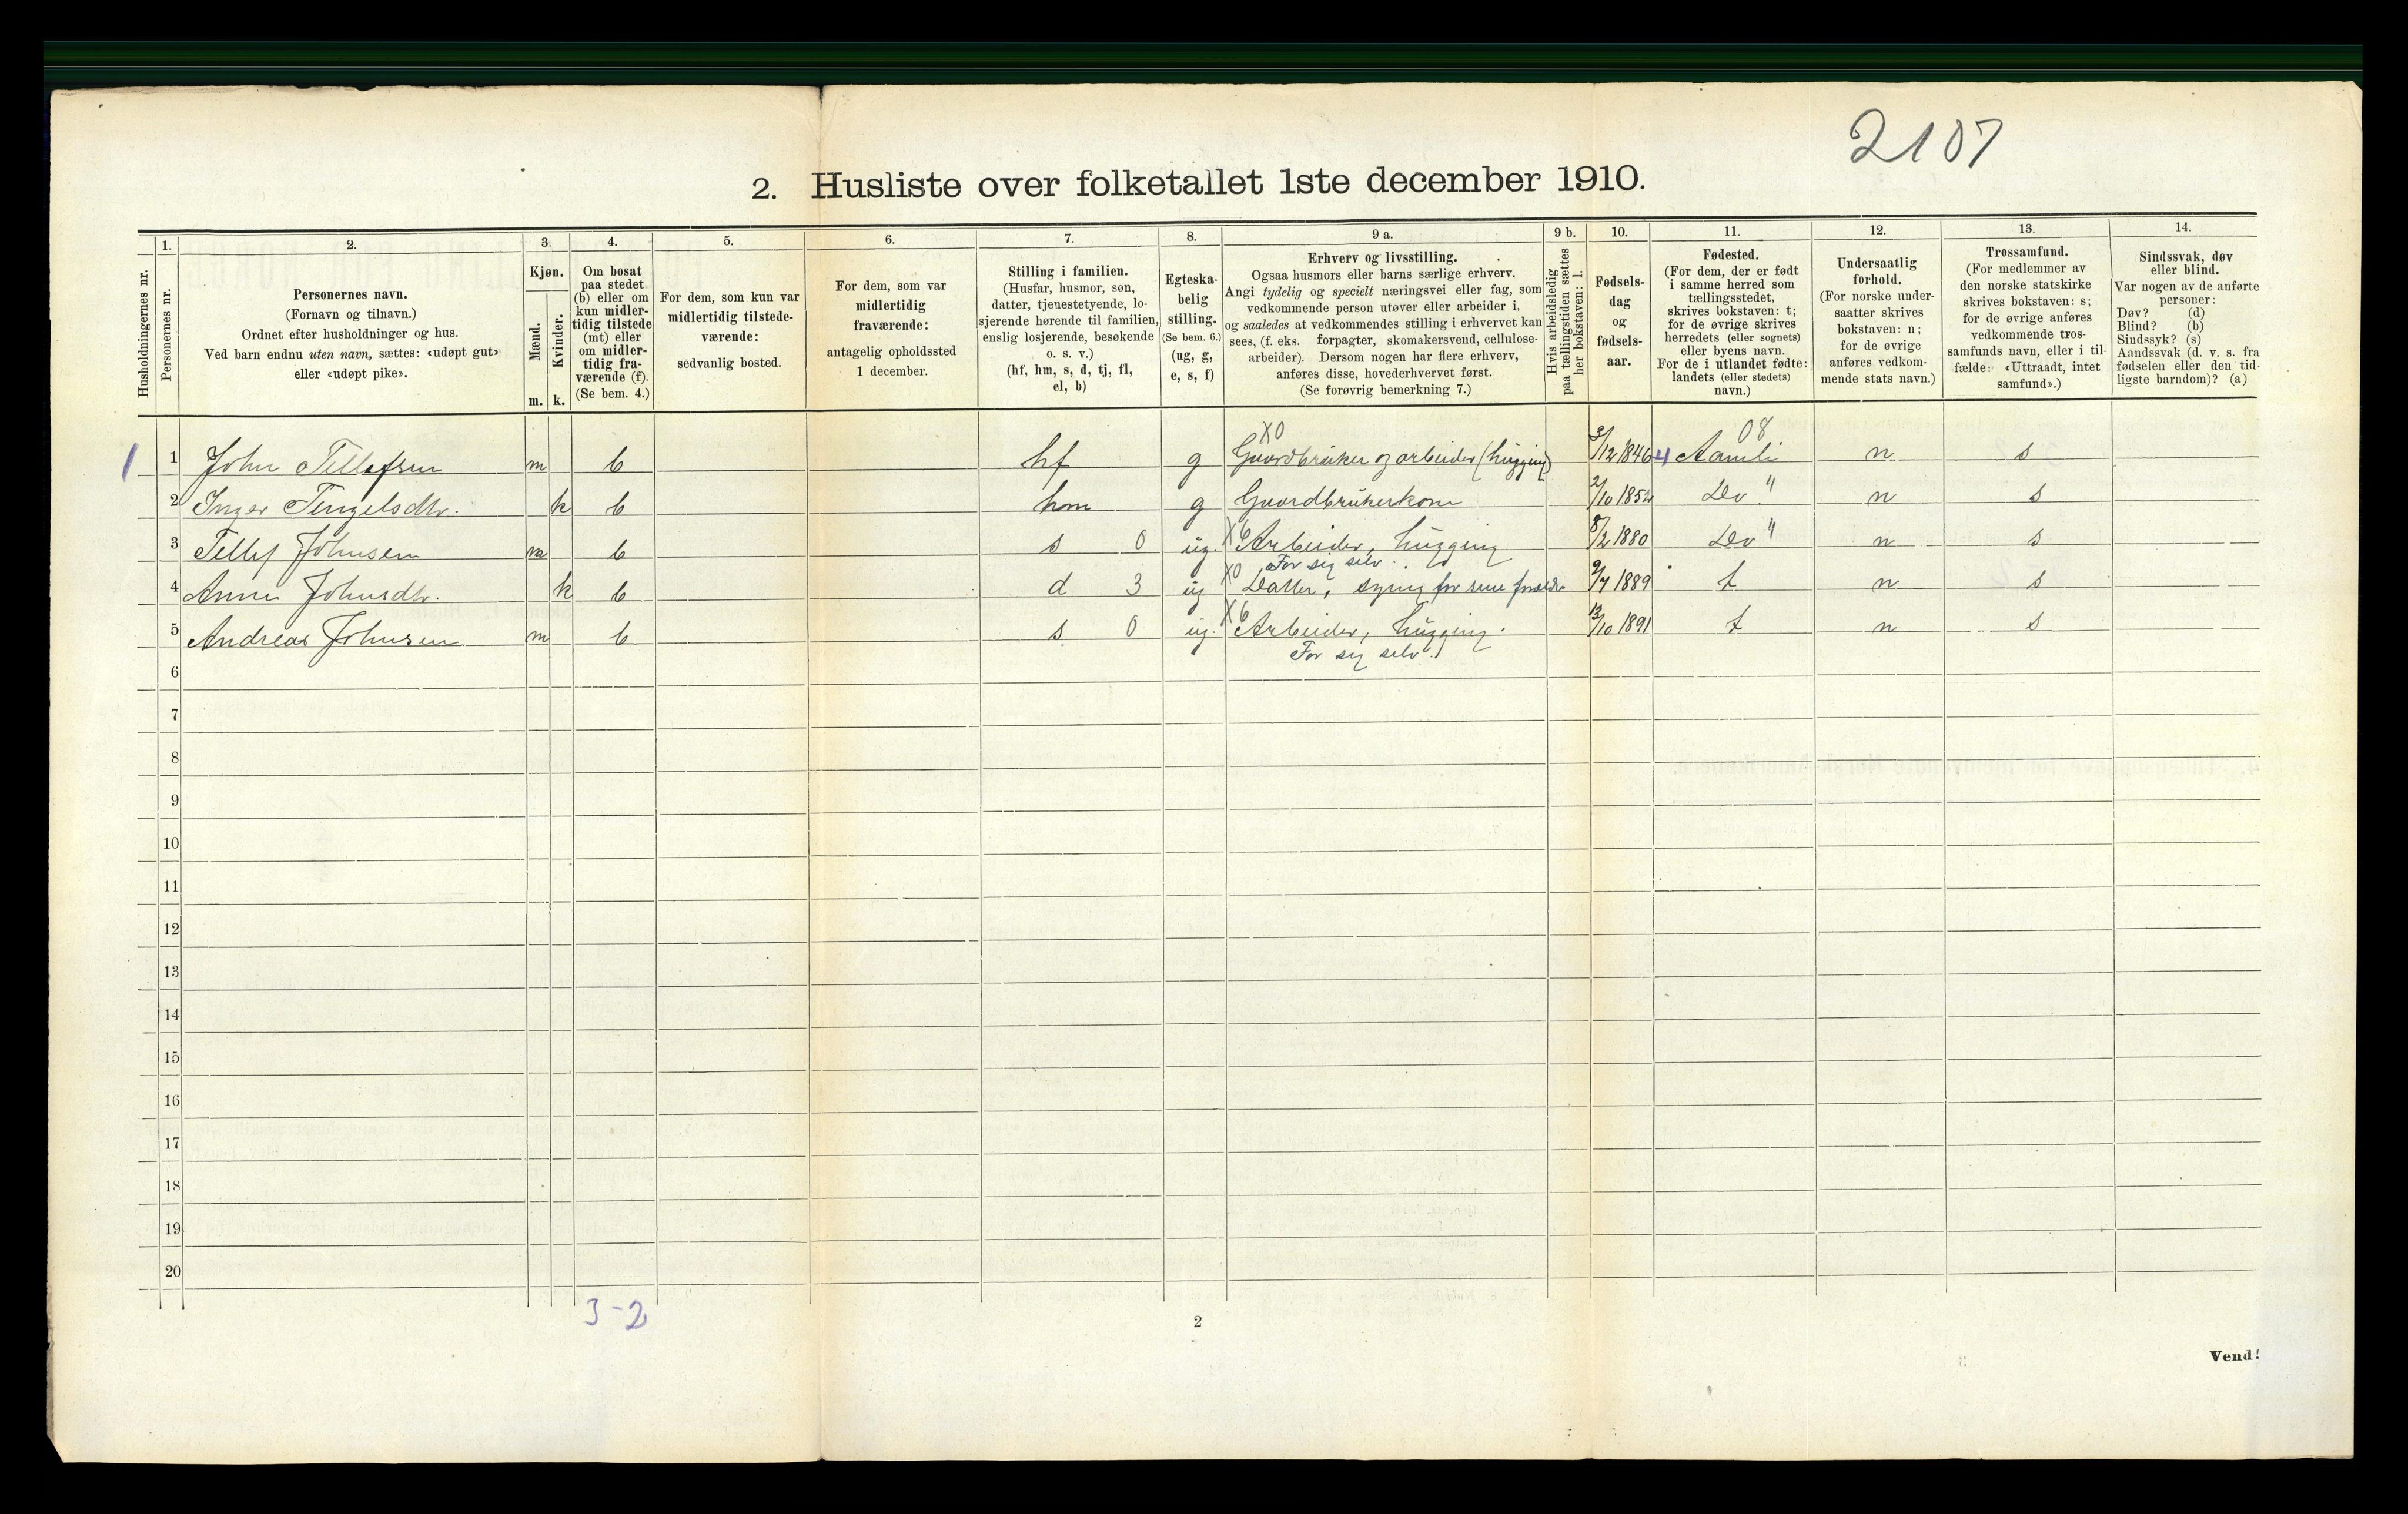 2107
2. Husliste over folketallet 1ste december 1910.
Husholdningernes nr.
1.
Personernes nr.
2.
Personernes navn.
(Fornavn og tilnavn.)
Ordnet efter husholdninger og hus.
Ved barn endnu uten navn, sættes: «udøpt gut»
eller «udøpt pike».
3.
Kjøn.
Mænd.
Kvinder.
m. k.
4.
Om bosat
paa stedet
(b) eller om
kun midler-
tidig tilstede
(mt) eller
om midler-
tidig fra-
værende (f).
(Se bem. 4.)
5.
For dem, som kun var
midlertidig tilstede-
værende:
sedvanlig bosted.
6.
For dem, som var
midlertidig
fraværende:
antagelig opholdssted
1 december.
7.
Stilling i familien.
(Husfar, husmor, søn,
datter, tjenestetyende, lo-
sjerende hørende til familien,
enslig losjerende, besøkende
o. s. v.)
(hf, hm, s, d, tj, fl,
el, b)
8.
Egteska-
belig
stilling.
(Se bem. 6.)
(ug, g,
e, s, f)
9 a.
Erhverv og livsstilling.
Ogsaa husmors eller barns særlige erhverv.
Angi tydelig og specielt næringsvei eller fag, som
vedkommende person utøver eller arbeider i,
og saaledes at vedkommendes stilling i erhvervet kan
sees, (f. eks. forpagter, skomakersvend, cellulose-
arbeider). Dersom nogen har flere erhverv,
anføres disse, hovederhvervet først.
(Se forøvrig bemerkning 7.)
9 b.
Hvis arbeidsledig
paa tællingstiden sættes
her bokstaven: l.
10.
Fødsels-
dag
og
fødsels-
aar.
11.
Fødested.
(For dem, der er født
i samme herred som
tællingsstedet,
skrives bokstaven: t;
for de øvrige skrives
herredets (eller sognets)
eller byens navn.
For de i utlandet fødte:
landets (eller stedets)
navn.)
12.
Undersaatlig
forhold.
(For norske under-
saatter skrives
bokstaven: n;
for de øvrige
anføres vedkom-
mende stats navn.)
13.
Trossamfund.
(For medlemmer av
den norske statskirke
skrives bokstaven: s;
for de øvrige anføres
vedkommende tros-
samfunds navn, eller i til-
fælde: «Uttraadt, intet
samfund».)
14.
Sindssvak, døv
eller blind.
Var nogen av de anførte
personer:
Døv? (d)
Blind? (b)
Sindssyk? (s)
Aandssvak (d. v. s. fra
fødselen eller den tid-
ligste barndom)? (a)
X0 08
1 1 John Tellefsen m b hf g Gaardbruker og arbeider (hugging) 3/12 1846 4 Aamli n s
2 Inger Tengelsdtr. k b hm g Gaardbrukerkone 2/10 1852 Do " n s
3 Tellef Johnsen m b s 0 ug. X6 Arbeider, hugging 8/2 1880 Do " n s
For sig selv.
4 Anne Johnsdtr. k b d 3 ug X0 Datter, syung for sine forældr 9/7 1889 t n s
5 Andreas Johnsen m b s 0 ug. X6 Arbeider, hugging. 13/10 1891 t n s
For sig selv.
6
7
8
9
10
11
12
13
14
15
16
17
18
19
20
3-2
2
Vend!